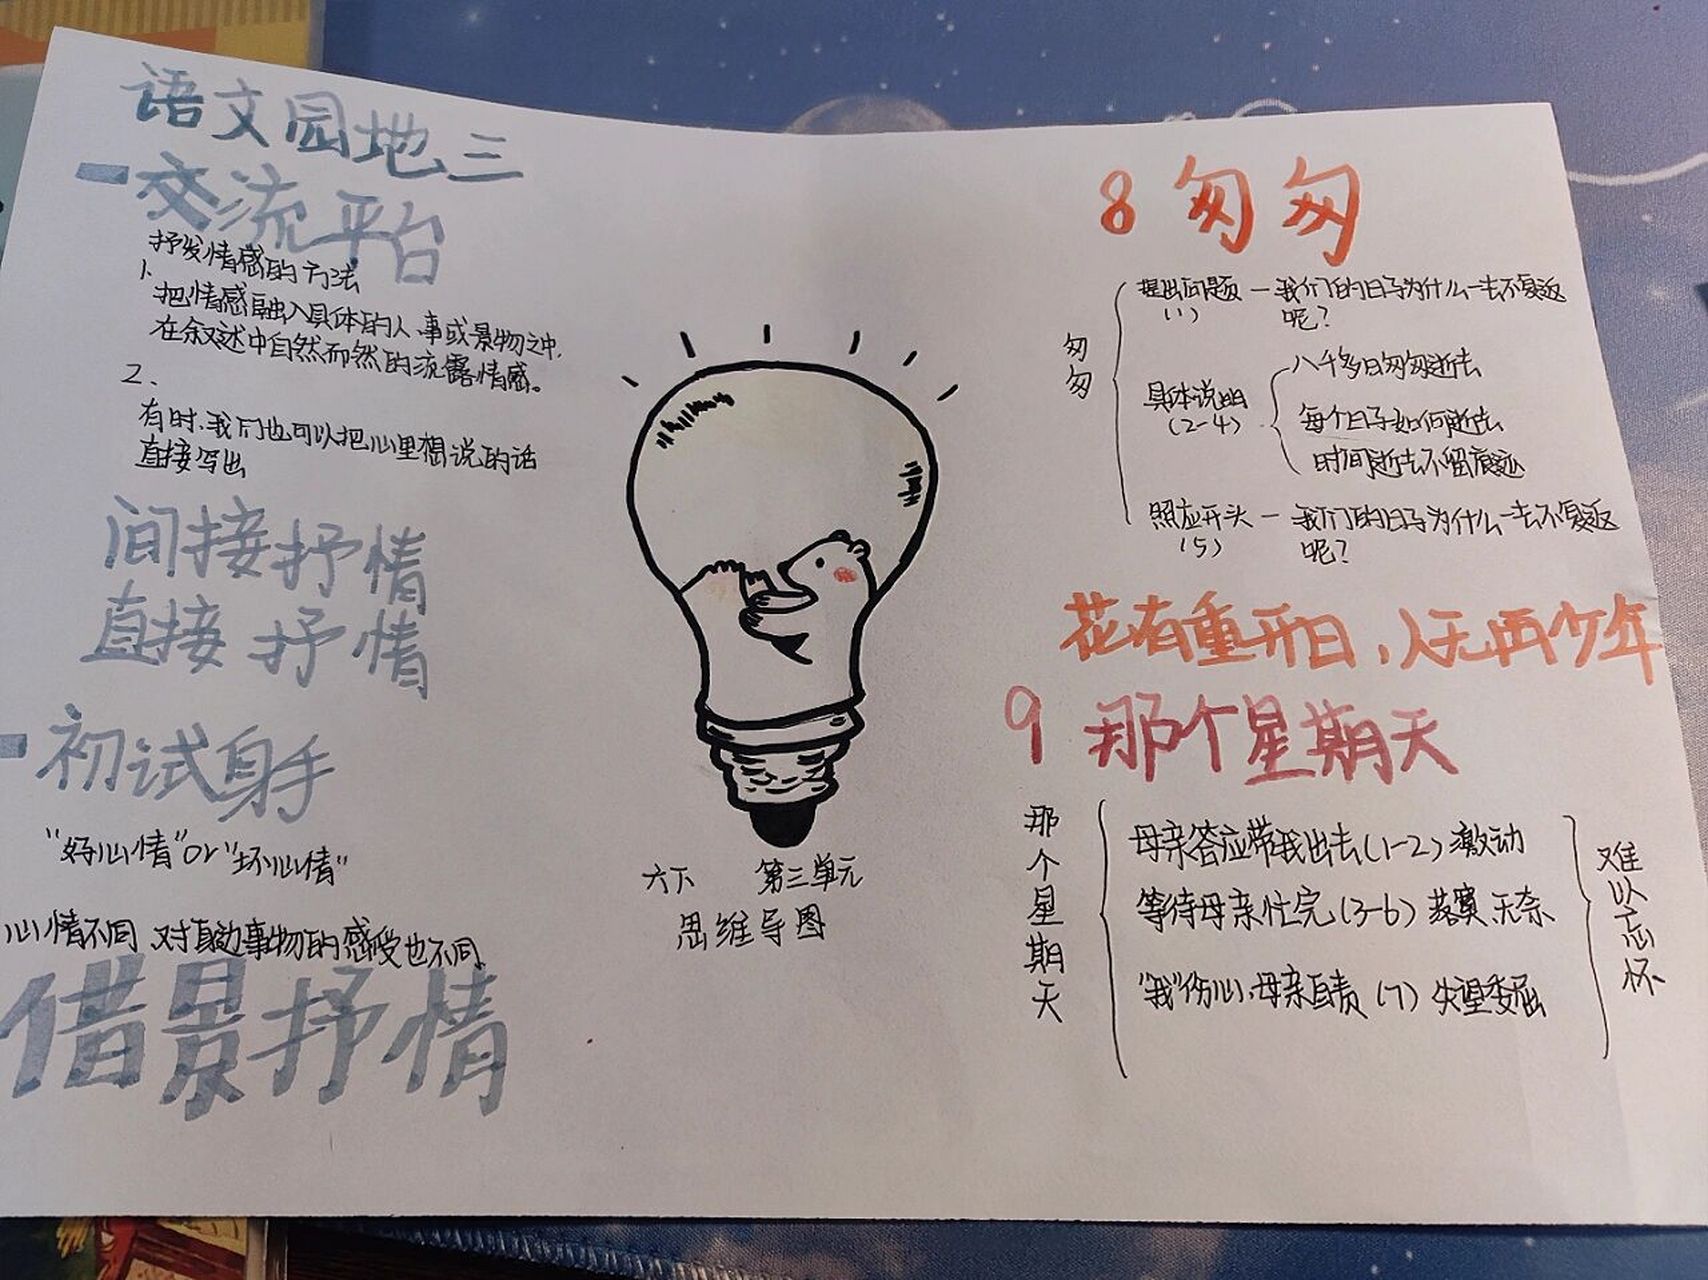 语文园地三
交流平台
抒发情感的方法
1、
把情感融入具体的人、事或景物之中,
在叙述中自然而然的流露情感。
2、
有时,我们也可以把心里想说的话
直接写出
间接抒情
直接抒情
初试身手
“好心情”or“坏心情”
心情不同 对身边事物的感受也不同
借景抒情
六下 第三单元
思维导图
8 匆匆
匆匆
提出问题 — 我们的日子为什么一去不复返
(1) 呢?
具体说明
(2-4)
八千多日匆匆逝去
每个日子如何逝去
时间逝去不留痕迹
照应开头 — 我们的日子为什么一去不复返
(5) 呢?
花有重开日,人无再少年
9 那个星期天
那个星期天
母亲答应带我出去(1-2) 激动
等待母亲忙完(3-6) 落寞 无奈
“我”伤心,母亲自责 (7) 失望委屈
难以忘怀